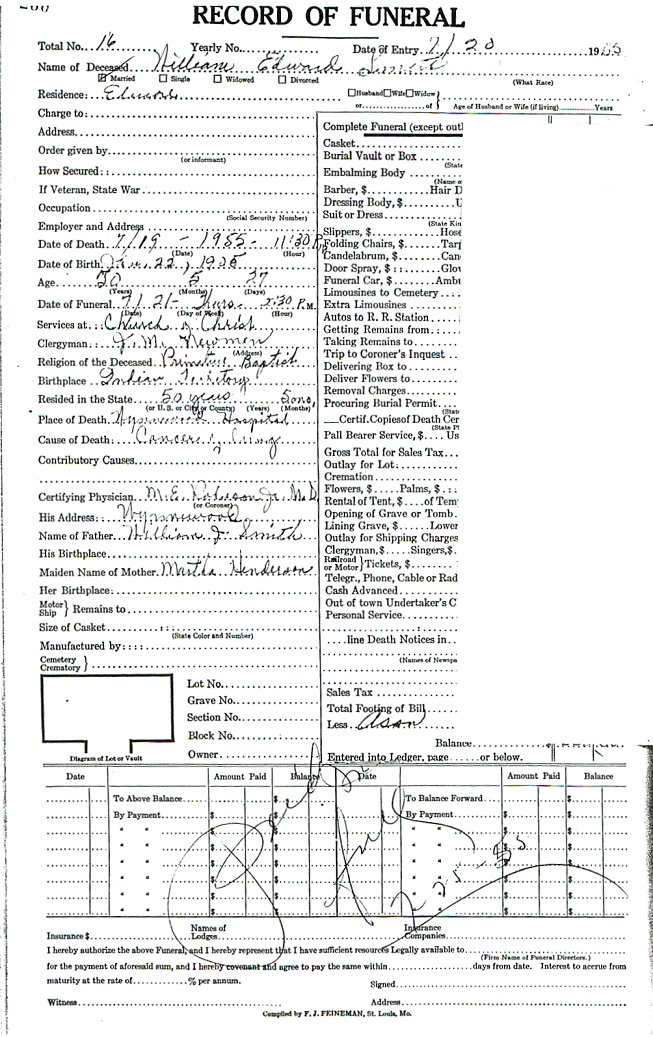 RECORD OF FUNERAL
Total No. 16 Yearly No. Date of Entry 7/20 1955
Name of Deceased William Edward
Married Single Widowed Divorced (What Race)
Residence: Husband Wife Widow
or of Age of Husband or Wife (if living) Years
Charge to:
Address
Order given by
(or informant)
How Secured::
If Veteran, State War
Occupation
(Social Security Number)
Employer and Address
Date of Death 7/19 - 1955 - 11:30 P.
(Date) (Hour)
Date of Birth 22, 19
Age 50 5 27
(Years) (Months) (Days)
Date of Funeral 7/21 - Thurs - 2:30 P.M.
(Date) (Day of Week) (Hour)
Services at:: Church of Christ
Clergyman: J. M. Newman
(Address)
Religion of the Deceased Primitive Baptist
Birthplace Indian Territory
Resided in the State 50 years 5 mo.
(or U.S. or City or County) (Years) (Months)
Place of Death Wynnewood Hospital
Cause of Death: Cancer of Lung
Contributory Causes
Certifying Physician M. E. Robberson Jr. M.D.
(or Coroner)
His Address: Wynnewood
Name of Father William J. Smith
His Birthplace
Maiden Name of Mother Martha Henderson
Her Birthplace:
Motor Ship } Remains to
Size of Casket
(State Color and Number)
Manufactured by::::
Cemetery Crematory }
Lot No.
Grave No.
Section No.
Block No.
Owner
Diagram of Lot or Vault
Complete Funeral (except outl
Casket
Burial Vault or Box
(State
Embalming Body
(Name o
Barber, $ Hair D
Dressing Body, $ U
Suit or Dress
(State Kin
Slippers, $ Hose
Folding Chairs, $ Tarp
Candelabrum, $ Can
Door Spray, $:: Glov
Funeral Car, $ Ambu
Limousines to Cemetery
Extra Limousines
Autos to R. R. Station
Getting Remains from::
Taking Remains to
Trip to Coroner's Inquest
Delivering Box to
Deliver Flowers to
Removal Charges
Procuring Burial Permit
(State
Certif. Copies of Death Cer
(State P
Pall Bearer Service, $ Us
Gross Total for Sales Tax
Outlay for Lot:
Cremation
Flowers, $ Palms, $
Rental of Tent, $ of Tem
Opening of Grave or Tomb
Lining Grave, $ Lower
Outlay for Shipping Charges
Clergyman, $ Singers, $
Railroad or Motor } Tickets, $
Telegr., Phone, Cable or Rad
Cash Advanced
Out of town Undertaker's C
Personal Service
line Death Notices in
(Names of Newspa
Sales Tax
Total Footing of Bill
Less
Balance
Entered into Ledger, page or below.
Date Amount Paid Balance Date Amount Paid Balance
To Above Balance $ To Balance Forward $
By Payment $ By Payment $
Paid
Full
Insurance $ Names of Lodges Insurance Companies
I hereby authorize the above Funeral, and I hereby represent that I have sufficient resources Legally available to
(Firm Name of Funeral Directors.)
for the payment of aforesaid sum, and I hereby covenant and agree to pay the same within days from date. Interest to accrue from
maturity at the rate of % per annum. Signed
Witness Address
Compiled by F. J. FEINEMAN, St. Louis, Mo.